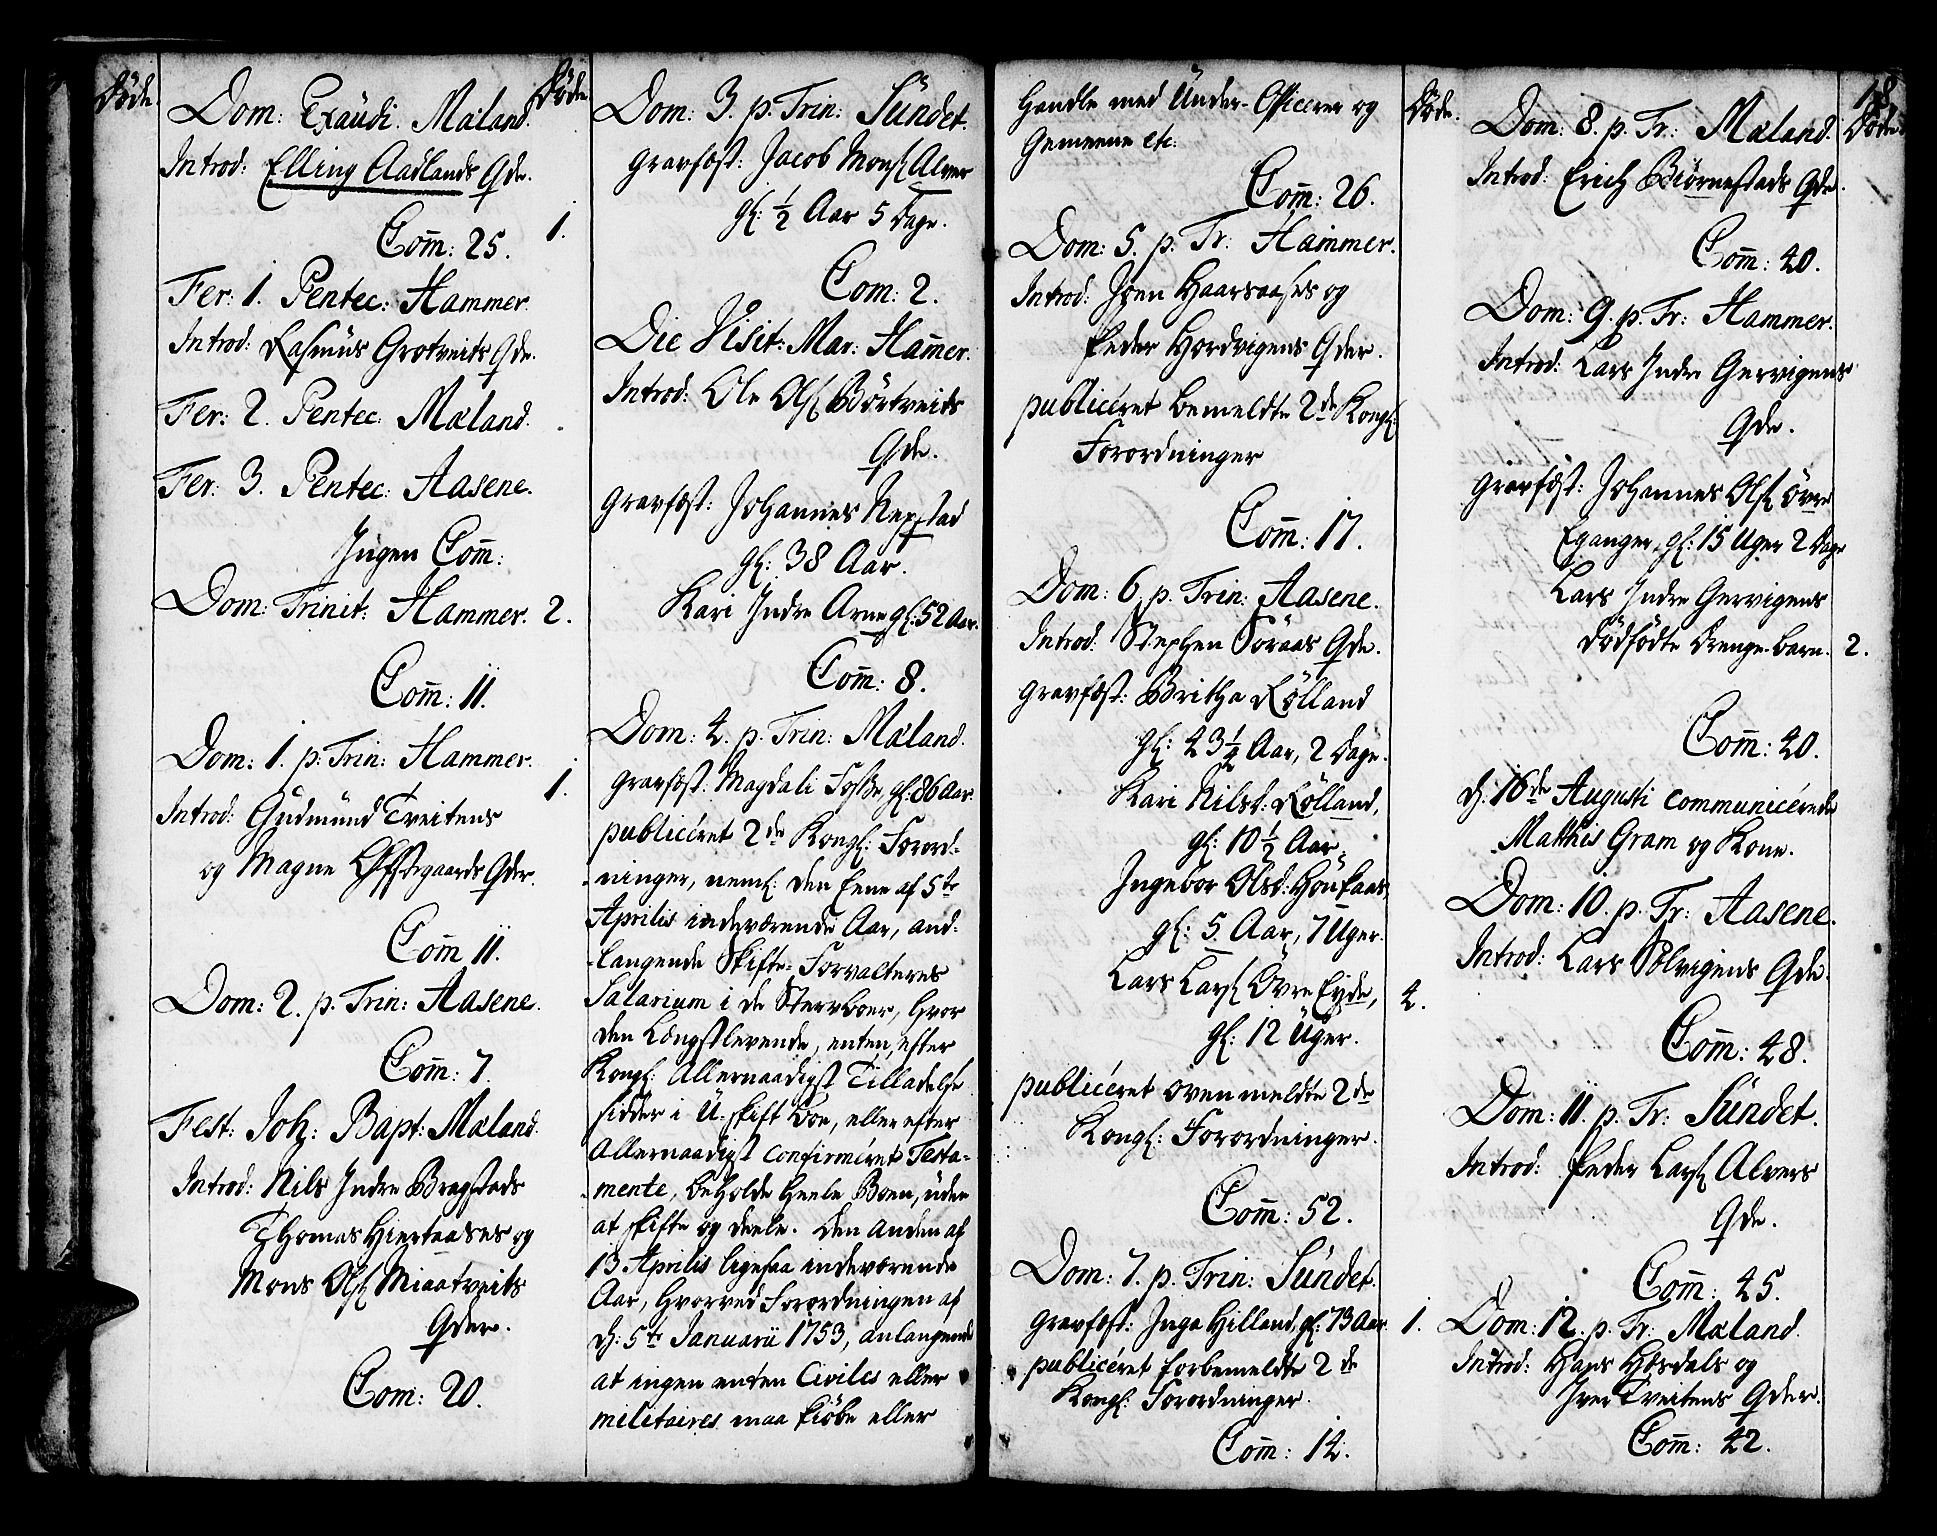 Døde.
Dom: Exaudi. Mæland.
Introd: Elling Aadlands Qde.
Com̄: 25.
Fer: 1. Pentec: Hammer.
Introd: Rasmus Grotveits Qde.
Fer: 2. Pentec: Mæland.
Fer: 3. Pentec: Aasene.
Ingen Com̄:
Dom: Trinit: Hammer.
Com̄: 11.
Dom: 1. p: Trin: Hammer.
Introd: Gudmund Tveitens
og Magne Qder.
Com̄ 11.
Dom: 2. p. Trin: Aasene.
Com̄: 7.
Fest: Joh: Bapt: Mæland.
Introd: Nils Indre Bragstads
Thomas Hiertaases og
Mons Ols: Miaatveits
Qder.
Com: 20.
Døde
1.
2.
1.
Dom: 3. p. Trin: Sundet.
gravfæst: Jacob Mons: Alver
gl: ½ Aar 5 Dage.
Com: 2.
Die Visit: Mar: Ham̄er.
Introd: Ole Ols: Börtveits
Qde.
gravfæst: Johannes Repstad
gl: 38 Aar.
Kari Indre Arne gl: 52 Aar.
Com̄: 8.
Dom: 4. p. Trin: Mæland.
gravfæst: Magdali Tosse, gl: 86 Aar.
publicéret 2de Kongl: Forord-
ninger, neml: den Eene af 5te
Aprilis indeværende Aar, and-
langende Skifte-Forvalteres
Salarium i de Sterrboer, hvor
den Længstlevende, enten, efter
Kongl: Allernaadigst Tilladelse
sidder i U-skift Boe, eller efter
Allernaadigst confirmeret Testa-
mente, beholde heele Boen, uden
at skifte og deele. Den Anden af
13 Aprilis ligesaa indeværende
Aar, hvorved Forordningen af
d: 5te Januarii 1753, anlangende
at ingen enten Civiles eller
militaires maa kiöbe eller
handle med Under-Officerer og
Gemeene etc:
Com̄: 26.
Dom: 5. p. Tr: Hammer.
Introd: Iven Haarsaases og
Peder Hordvigens Qder.
publicéret bemeldte 2de Kongl:
Forordninger
Com̄: 17.
Dom: 6. p. Trin: Aasene.
Introd: Stephen Söraas Qde.
gravfæst: Britha Rölland
gl: 43¼ Aar, 2 Dage.
Kari Nilsd: Rölland,
gl: 10½ Aar.
Ingebor Olsd: Houkaas
gl: 5 Aar, 7 Uger.
Lars Lars: Övre Eyde,
gl: 12 Uger.
publicéret ovenmeldte 2de
Kongl: Forordninger.
Com̄: 52.
Dom: 7. p. Trin: Sundet.
gravfæst: Inga Hilland, gl: 73 Aar.
publicéret forbemeldte 2de
Kongl: Forordninger.
Com̄: 14.
Døde.
4.
1.
Dom: 8. p. Tr: Mæland.
Introd: Erich Biörnestads Qde.
Com̄: 40.
Dom: 9. p. Tr: Hammer.
Introd: Lars Indre Gervigens
Qde.
gravfæst: Johannes Ols: övre
Eganger, gl: 15 Uger 2 Dage
Lars Indre Gervigens
dödfödte Drenge-barn.
Com̄: 40.
d: 16de Augusti communicérede
Mathis Gram og Kone.
Dom: 10. p. Tr: Aasene.
Introd: Lars Sölvigens Qde.
Com̄: 48.
Dom: 11. p. Tr: Sundet.
Introd: Peder Lars: Alvers
Qde.
Com̄: 45.
Dom: 12. p. Tr: Mæland.
Introd: Hans Hosdals og
Iver Tveitens Qder.
Com̄: 42.
18.
Döde
2.